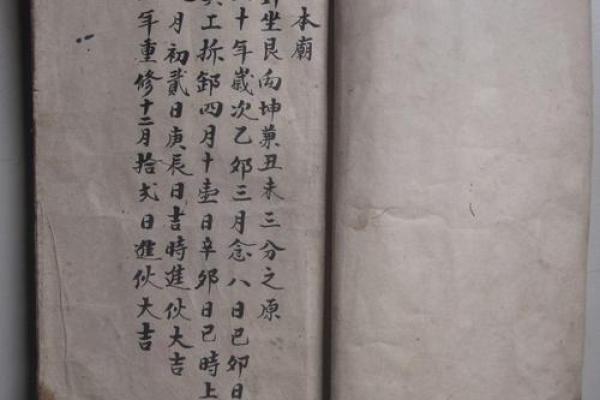 本廟
坐艮向坤兼丑未三分之原
十年歲次乙卯三月念八日己卯日
工拆卸四月十壹日辛卯日己時上
月初貳日庚辰日吉時進伙大吉
年重修十二月拾弍日進伙大吉